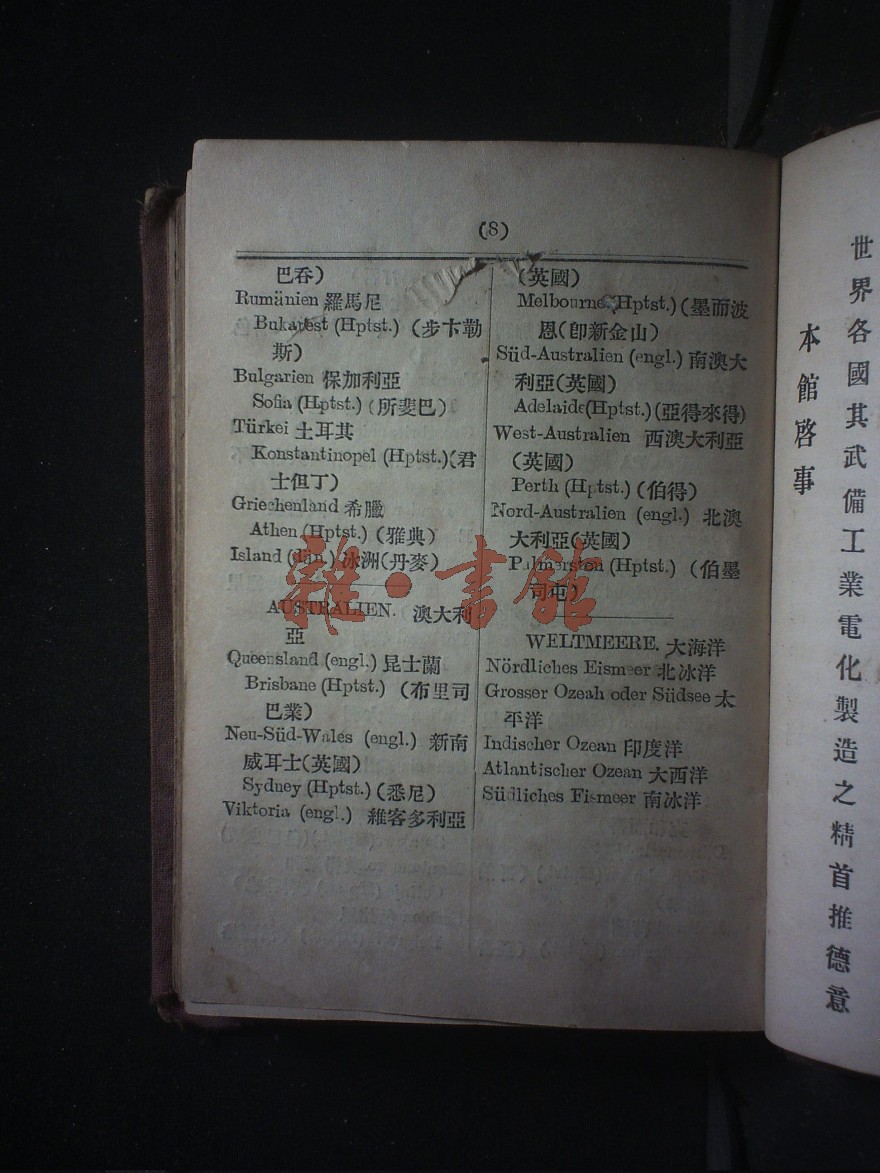 (8)
巴呑)
Rumänien 羅馬尼
Bukarest (Hptst.) (步卞勒
斯)
Bulgarien 保加利亞
Sofia (Hptst.) (所斐巴)
Türkei 土耳其
Konstantinopel (Hptst.)(君
士但丁)
Griechenland 希臘
Athen (Hptst.) (雅典)
Island (dän.) 冰洲(丹麥)
AUSTRALIEN. 澳大利
亞
Queensland (engl.) 昆士蘭
Brisbane (Hptst.) (布里司
巴業)
Neu-Süd-Wales (engl.) 新南
威耳士(英國)
Sydney (Hptst.) (悉尼)
Viktoria (engl.) 維客多利亞
(英國)
Melbourne (Hptst.) (墨而波
恩(卽新金山)
Süd-Australien (engl.) 南澳大
利亞(英國)
Adelaide(Hptst.) (亞得來得)
West-Australien 西澳大利亞
(英國)
Perth (Hptst.) (伯得)
Nord-Australien (engl.) 北澳
大利亞(英國)
Palmerston (Hptst.) (伯墨
司屯)
WELTMEERE. 大海洋
Nördliches Eismeer 北冰洋
Grosser Ozeah oder Südsee 太
平洋
Indischer Ozean 印度洋
Atlantischer Ozean 大西洋
Südliches Eismeer 南冰洋
雜·書館
世界各國其武備工業電化製造之精首推德意
本館啓事